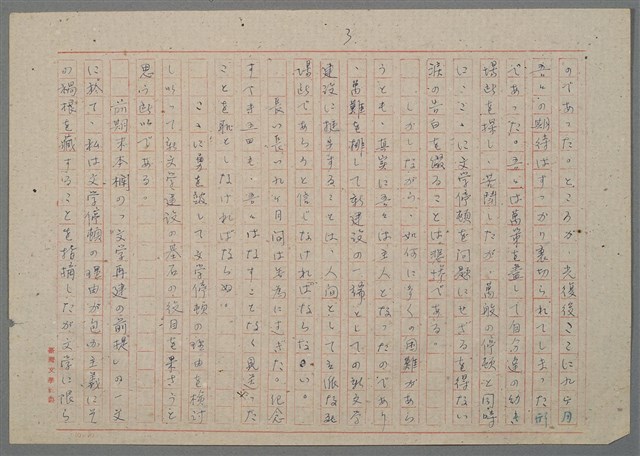 3
のであった。ところが、光復後こゝに九ヶ月
吾々の期待はすっかり裏切られてしまった形
であった。吾々は万策を盡して自分達の幼き
を探し、苦闘したが、万般の停頓と同時
に、こゝに文学停頓を問題にせざるを得ない
涙の告白を綴ることは悲憤である。
しかしながら、如何に多くの困難があら
うとも、真実に吾々は主人となったのであり
、万難を排して新建設の一端としての新文学
建設に挺身することは、人間としても立派な
であらうと信じなければならない。
長い長い九ヶ月間は無為にすぎた。紀念
すべき五四も、吾々はなすことなく見送った
ことを恥としなければならぬ。
こゝに勇を鼓して文学停頓の理由を検討
しもって新文学建設の基石の役目を果さうと
思う此である。
前期本欄の「文学再建の前提」の一文
に於て、私は文学停頓の理由が自由主義にそ
の禍根を蔵することを指摘したが文学に限ら